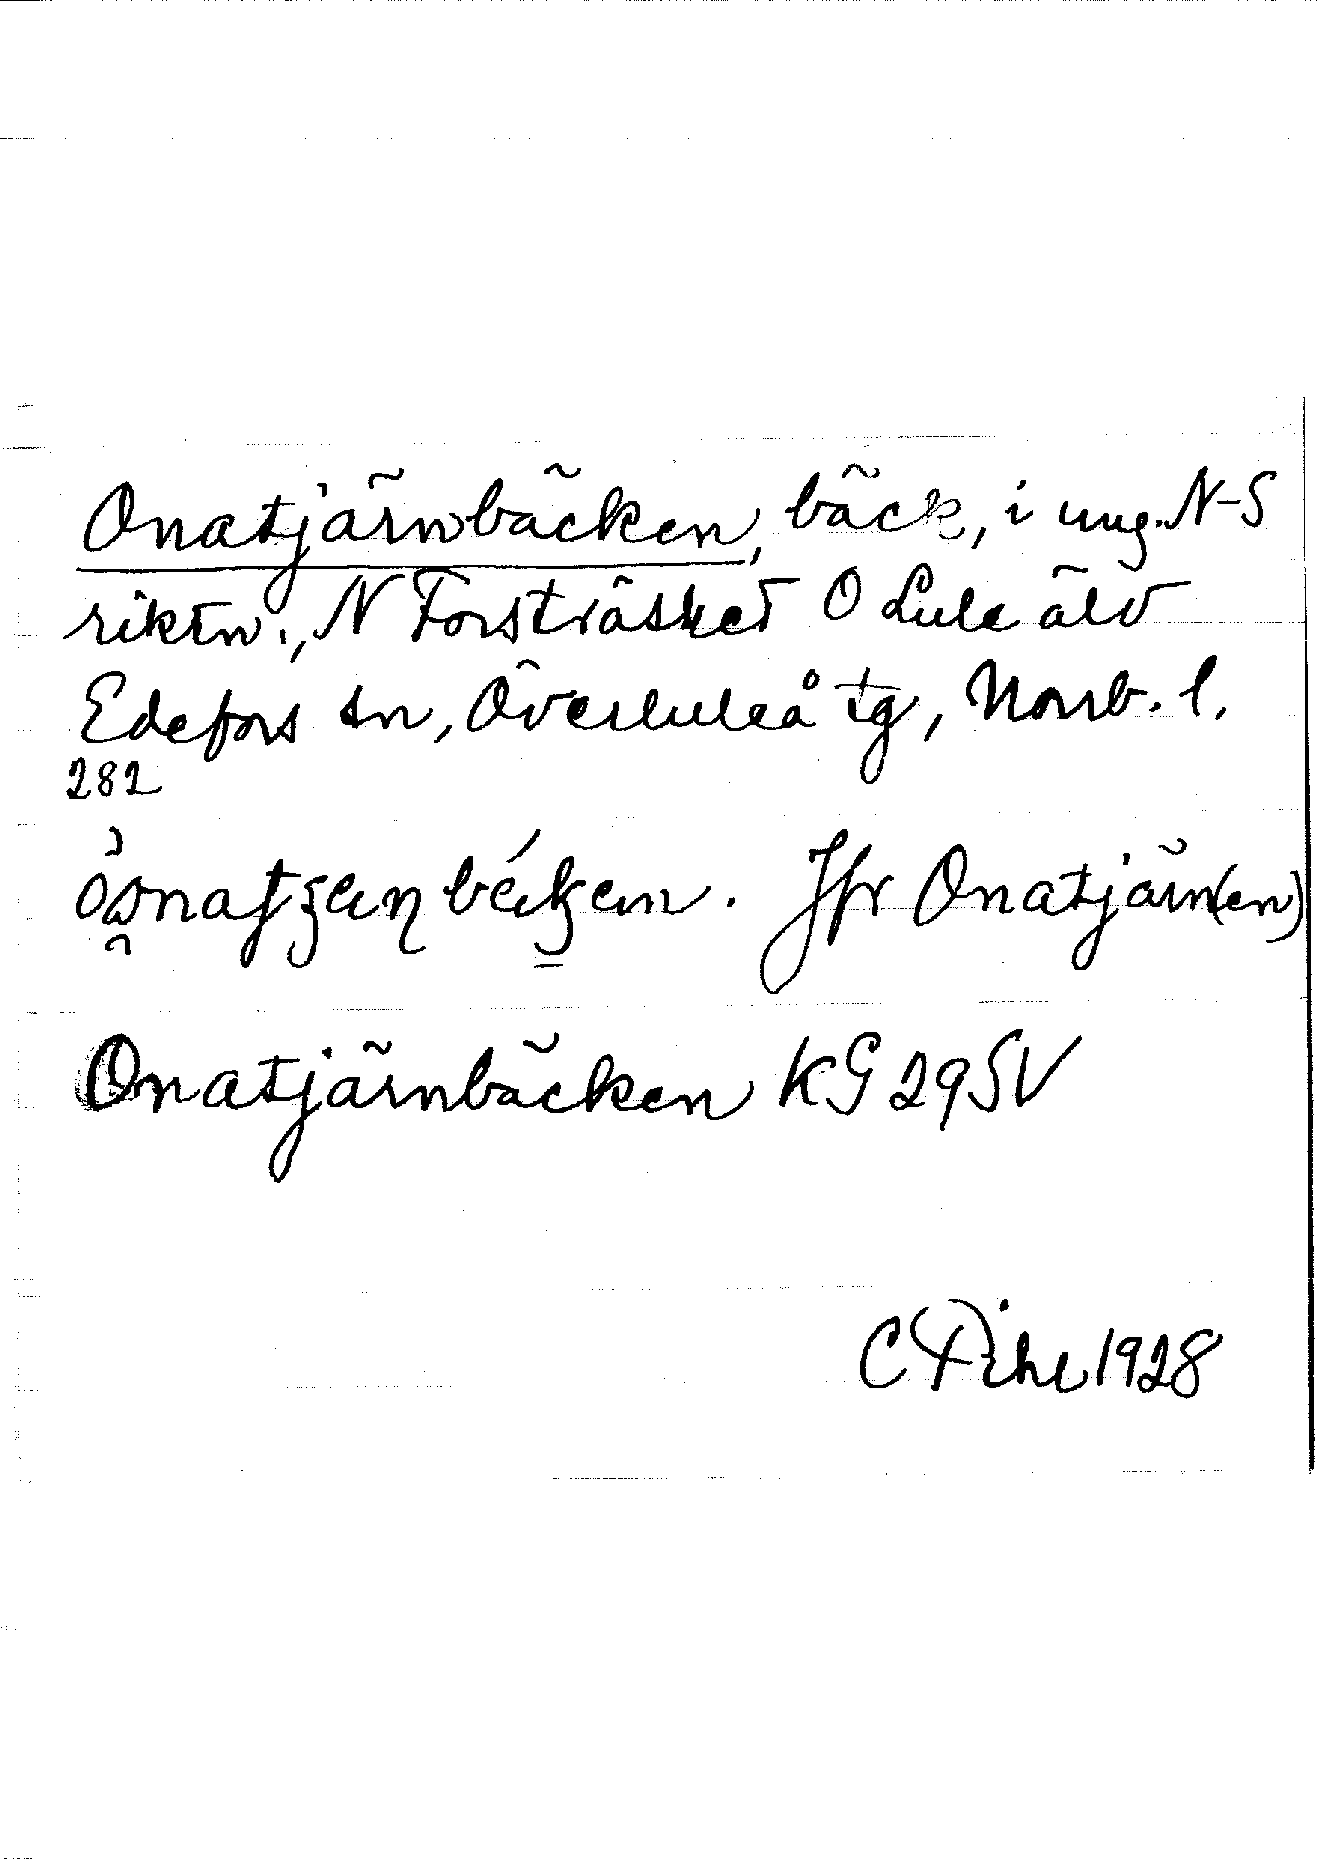 Onatjärnbäcken, bäck, i ung. N-S
riktn., N Forsträsket O Lule älv
Edefors sn, Överluleå tg, Norrb. l.
282
Jfr Onatjärn(en)
Onatjärnbäcken KG 29 SV
C Pihl 1928